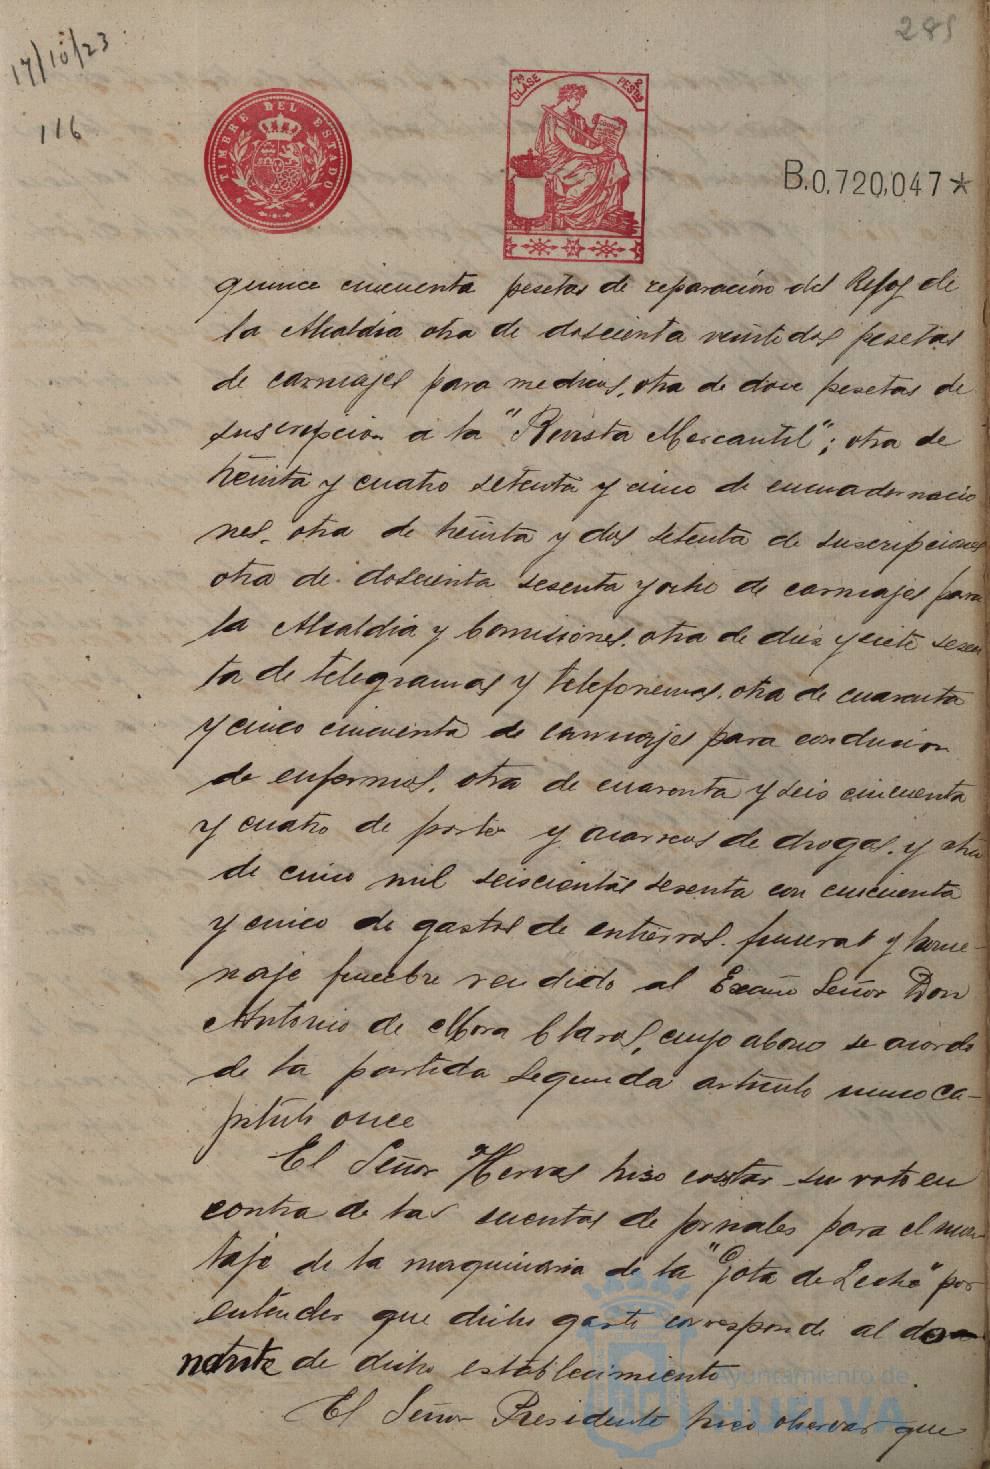 17/10/23
116
285
TIMBRE DEL ESTADO
7ª CLASE
2 PESTAS
B.0,720,047*
quince cincuenta pesetas de reparación del Reloj de
la Alcaldia otra de doscienta veintidos pesetas
de carruajes para medicos, otra de doce pesetas de
suscrepcion a la "Revista Mercantil"; otra de
treinta y cuatro setenta y cinco de encuadernacio
nes. otra de treinta y dos setenta de suscripciones
otra de doscienta sesenta y ocho de carruajes para
la Alcaldia y Comisiones. otra de diez y siete sesen
ta de telegramas y telefonemas. otra de cuarenta
y cinco cincuenta de carruajes para conducion
de enfermos. otra de cuarenta y seis cincuenta
y cuatro de portes y acarreos de drogas. y otra
de cinco mil seiscientas sesenta con cincuenta
y cinco de gastos de entierros. funeral y home-
naje funebre rendido al Excmo Señor Don
Antonio de Mora Claros, cuyo abono se acordo
de la partida segunda artículo unico ca-
pitulo once
El Señor Hervas hiso costar su voto en
contra de las cuentas de jornales para el mon-
taje de la maquinaria de la "Gota de Leche" por
entender que dicho gasto corresponde al do
natente de dicho establecimiento
El Señor Presidente hiso observar que
Ayuntamiento de
HUELVA